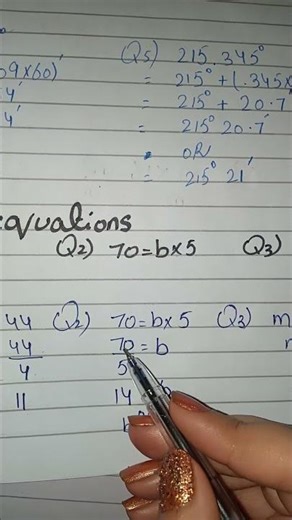 Q5) 215.345°
09×60)'
= 215°+(.345×
4'
= 215° + 20.7
4'
= 215° 20.7'
OR
= 215° 21'
equations
Q2) 70=b×5 Q3)
44 Q2) 70=b×5 Q3) m
44 70=b
4 5
11 14